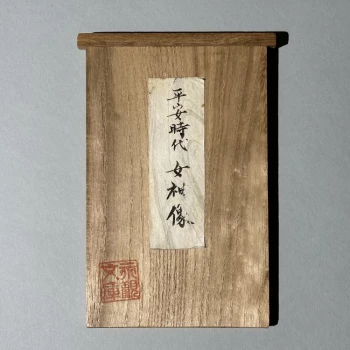 平安時代 女神像